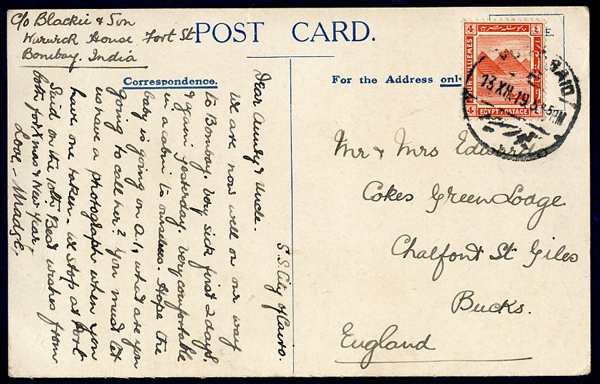 C/o Blackie & Son
Warwick House Fort St
Bombay. India
POST CARD.
Correspondence.
For the Address only
S.S. City of Cairo.
Dear Aunty & Uncle.
We are now well on our way
to Bombay. Very sick first 2 days
& again yesterday. Very comfortable
in a cabin to ourselves. Hope the
baby is going on A.1, what are you
going to call her? You must let
us have a photograph when you
have one taken. We stop at Port
Said on the 10th. Best wishes from
both for Xmas & New Year,
Love, Madge.
4 4
EGYPT POSTAGE
SAID
13 XII 19
PM
Mr & Mrs
Cokes Green Lodge
Chalfont St Giles
Bucks.
England